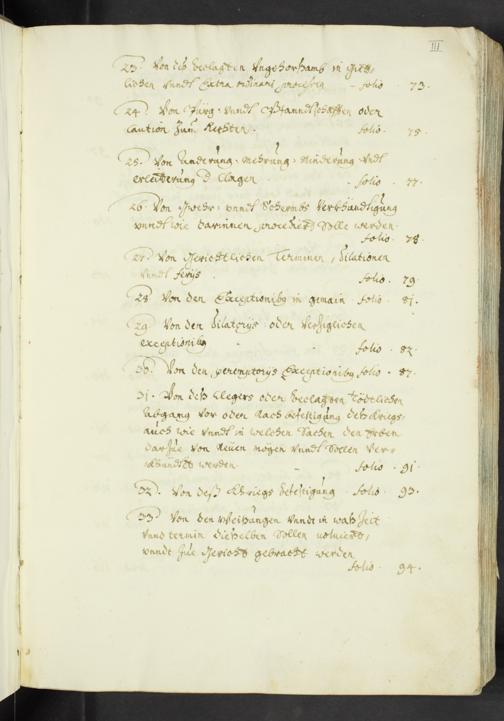 III
23. Von deß beclagten Ungehorsamb in Güt-
lichen unndt Extra ordinari processen folio 73.
24. Von Bürg- unndt Pfanndtschafften oder
Caution zum Rechten. folio. 75.
25. Von Änderung, mehrung, minderung undt
erleüterung d Clagen folio. 77.
26. Von unndt Verkhandtigung
unndt wie darinnen procediert Solle werden
folio. 78.
27. Von Gerichtlichen Terminen, Dilationen
unndt ferijs. folio. 79
28. Von den Exceptionibus in gemain folio 81.
29. Von den dilatorijs oder Verzüglichen
exceptionibus folio. 82.
30. Von den peremptorijs Exceptionibus folio. 87.
31. Von deß Clegers oder beclagten tödtlichen
Abgang vor oder nach befestigung deß Kriegs
auch wie unndt in welchen Sachen den Erben
darzue von Neüen mögen unndt Sollen ver-
khündet werden. folio. 91.
32. Von deß Khriegs befestigung folio. 93.
33. Von den Weisungen unndt in waß Zeit
unnd termin dieselben Sollen volnicht,
unndt Zue Gericht gebracht werden
folio. 94.